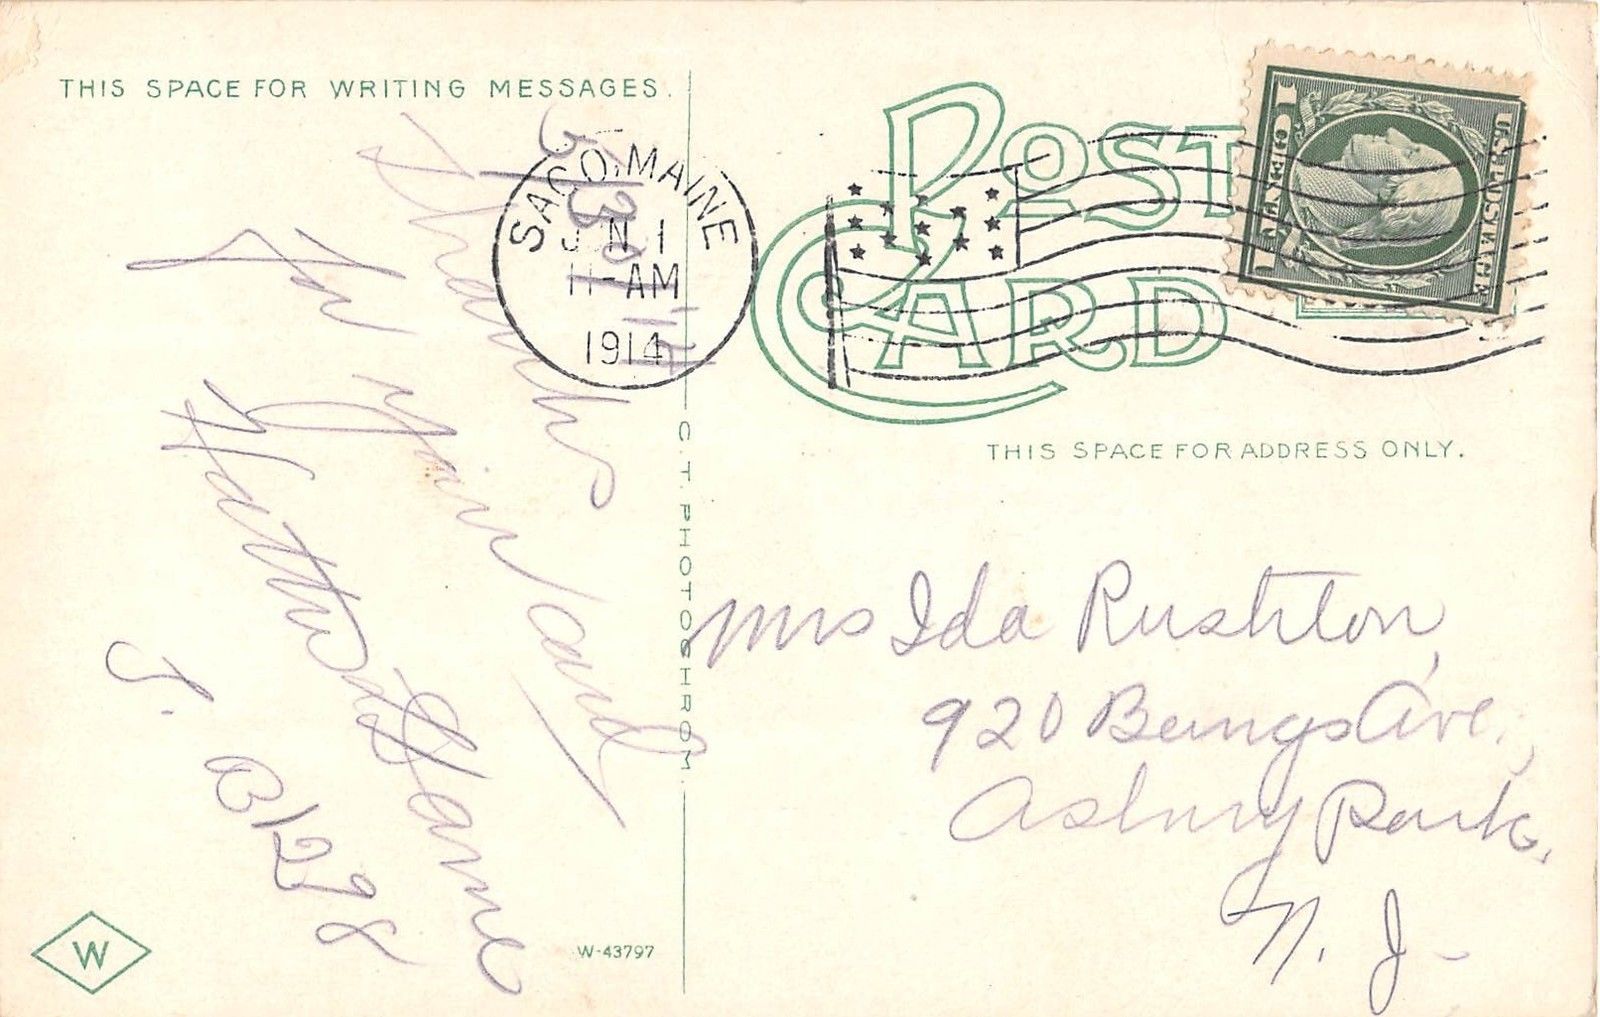 THIS SPACE FOR WRITING MESSAGES.
POST CARD
SACO, MAINE
JUN 1
11-AM
1914
U.S. POSTAGE
1 ONE CENT 1
THIS SPACE FOR ADDRESS ONLY.
5/30/'14
Thanks
for your card
J. B 1298
Mrs Ida Rushton,
920 Bangs Ave.,
Asbury Park,
N. J-
C. T. PHOTOCHROM.
W
W-43797